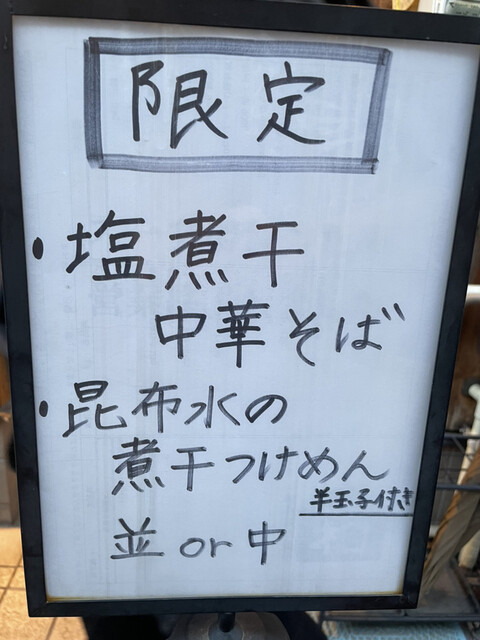 限定
・塩煮干
中華そば
・昆布水の
煮干つけめん
半玉子付き
並 or 中